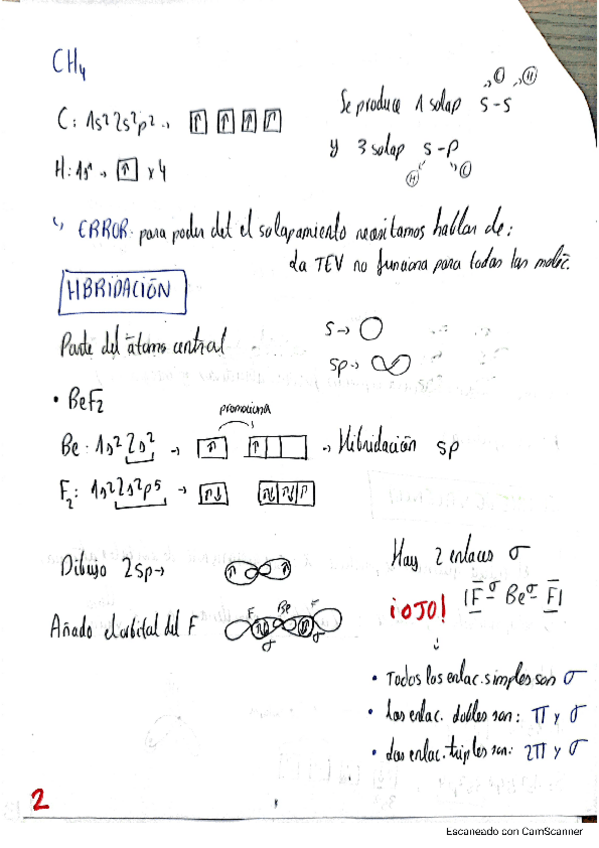 CH4
C: 1s² 2s²p² → ↑ ↑ ↑ ↑
Se produce 1 solap s-s
C H
H: 1s¹ → ↑ x4
y 3 solap s-p
H C
↳ ERROR. para poder det el solapamiento necesitamos hablar de:
La TEV no funciona para todas las moléc.
HBRIDACIÓN
Parte del átomo central
s→
sp→
• BeF2
promociona
Be: 1s² 2s² → ↑ ↑ → Hibridación sp
F2: 1s² 2s²p⁵ → ↑↓ ↑↓ ↑↓ ↑
Dibujo 2sp→ ↑ ↑
Hay 2 enlaces σ
Añado el orbital del F
F Be F
σ σ
¡OJO! |F -σ Be σ- F|
• Todos los enlac. simples son σ
• Los enlac. dobles son: π y σ
• Los enlac. triples son: 2π y σ
2
Escaneado con CamScanner